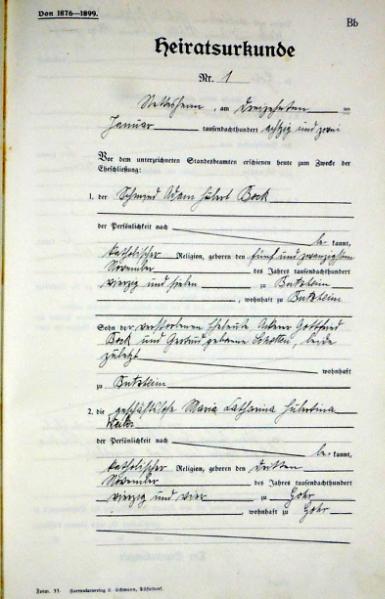 Von 1876—1899.
Bb
Heiratsurkunde
Nr. 1
Nettesheim, am dreizehnten
Januar tausendachthundert achtzig und zwei
Vor dem unterzeichneten Standesbeamten erschienen heute zum Zwecke der
Eheschließung:
1. der Schmied Adam Hubert Bock
der Persönlichkeit nach
be kannt,
katholischer Religion, geboren den fünf und zwanzigsten
November des Jahres tausendachthundert
vierzig und sieben zu Butzheim
, wohnhaft zu Butzheim
Sohn der verstorbenen Eheleute Ackerer Gottfried
Bock und Gertrud geborene beide
zuletzt wohnhaft
zu Butzheim
2. die geschäftslose Maria Catharina Hubertina
der Persönlichkeit nach
be kannt,
katholischer Religion, geboren den dritten
November des Jahres tausendachthundert
vierzig und vier zu Gohr
wohnhaft zu Gohr